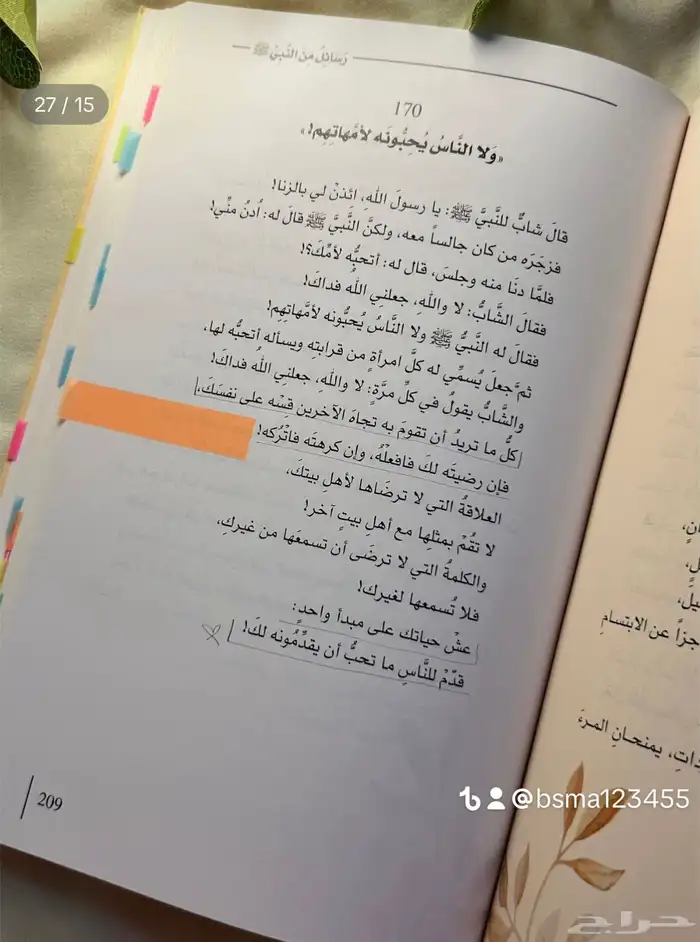 27 / 15
رَسَائِلُ مِنَ النَّبيِّ ﷺ
170
«وَلا النَّاسُ يُحِبُّونَه لأمَّهاتِهِم!»
قالَ شابٌّ للنَّبيِّ ﷺ: يا رسولَ اللهِ، ائذنْ لي بالزنا!
فزجَرَه من كان جالساً معه، ولكنَّ النَّبيَّ ﷺ قالَ له: اُدنُ منِّي!
فلمَّا دنَا منه وجلسَ، قال له: أتحبُّه لأمِّكَ؟!
فقالَ الشَّابُّ: لا واللهِ، جعلنِي اللهُ فداكَ!
فقالَ له النَّبيُّ ﷺ ولا النَّاسُ يُحبُّونه لأمَّهاتِهِم!
ثمَّ جعلَ يُسمِّي له كلَّ امرأةٍ من قرابتِهِ ويسألُه أتحبُّه لها،
والشَّابُّ يقولُ في كلِّ مرَّةٍ: لا واللهِ، جعلنِي اللهُ فداكَ!
كلُّ ما تريدُ أن تقومَ به تجاهَ الآخرين قِسْه على نفسَكَ،
فإن رضيتَه لكَ فافعلْهُ، وإن كرهتَه فاتْرُكه!
العلاقةُ التي لا ترضَاها لأهلِ بيتكَ،
لا تقُمْ بمثلِها مع أهلِ بيتٍ آخر!
والكلمةُ التي لا ترضَى أن تسمعَها من غيركِ،
فلا تُسمعها لغيرك!
عشْ حياتك على مبدأ واحدٍ:
قدِّمْ للنَّاسِ ما تحبُّ أن يقدِّمُونه لكَ!
209
انٍ،
لِ،
يلُ،
جزاً عن الابتسامِ
داتِ، يمنحانِ المرءَ
@bsma123455
حراج